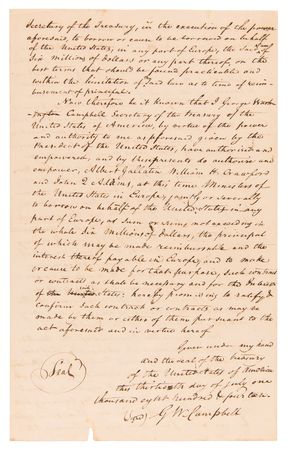 Secretary of the Treasury, in the execution of the power
aforesaid, to borrow or cause to be borrowed on behalf
of the United States, in any part of Europe, the said
Six Millions of dollars or any part thereof, on the
best terms that should be found practicable and
within the limitation of said law as to time of reim
bursement of principal.
Now therefore be it known that I George Wash
ington Campbell Secretary of the Treasury of the
United States of America, by virtue of the power
and authority to me as aforesaid given by the
President of the United States, have authorized and
empowered, and by these presents do authorize and
empower, Albert Gallatin William H. Crawford
and John Q Adams, at this time Ministers of
the United States in Europe, jointly or severally
to borrow on behalf of the United States in any
part of Europe, a sum or sums not exceeding in
the whole Six Millions of Dollars, the principal
of which may be made reimbursable and the
interest thereof payable in Europe, and to make
or cause to be made for that purpose, such contract
or contracts as shall be necessary and for the Interest
of the United States; hereby promising to ratify &
confirm such contract or contracts as may be
made by them or either of them pursuant to the
act aforesaid and in virtue hereof.
Seal
Given under my hand
and the seal of the Treasury
of the United States of America
this thirteenth day of July one
thousand eight hundred & fourteen.
G W. Campbell